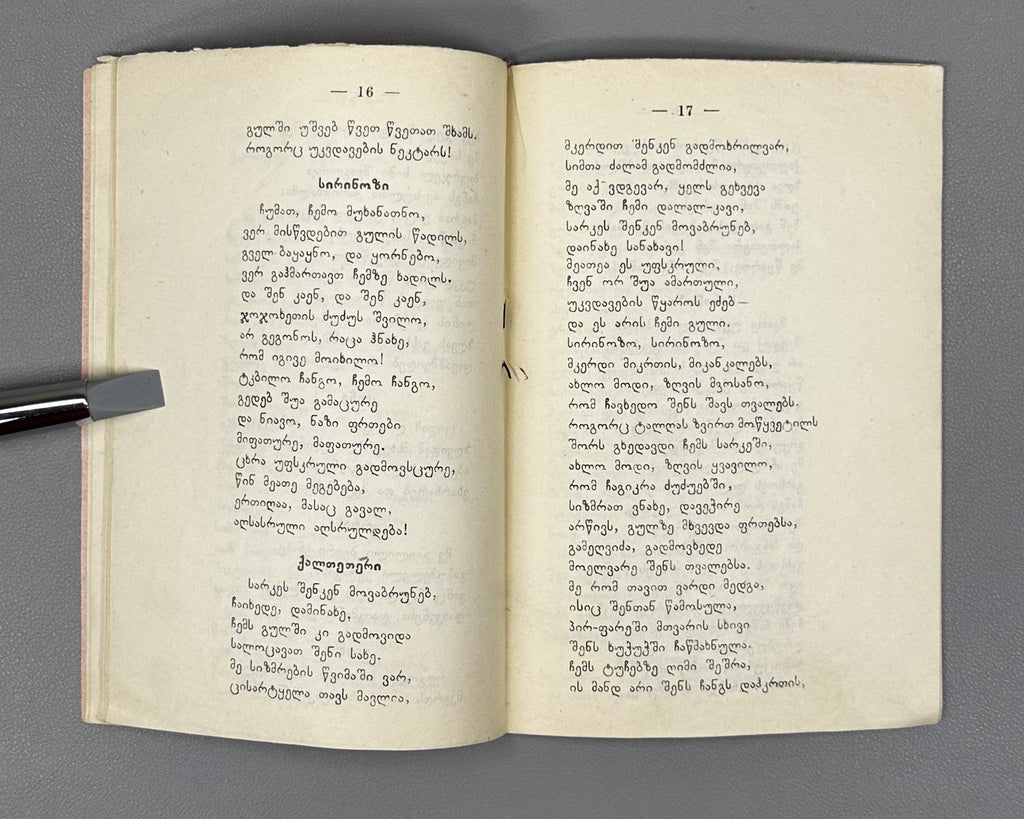 — 16 —
გულში უშვებ წვეთ წვეთათ შხამს.
როგორც უკვდავების ნეკტარს!
სირინოზი
ჩუმათ, ჩემო მუხანათნო,
ვერ მისწვდებით გულის წადილს,
გველ-ბაყაყნო, და ყორნებო,
ვერ გაჰმართავთ ჩემზე ხადილს.
და შენ კაენ, და შენ კაენ,
ჯოჯოხეთის ძუძუს შვილო,
არ გეგონოს, რაცა ჰნახე,
რომ იგივე მოიხილო!
ტკბილო ჩანგო, ჩემო ჩანგო,
გედებ შუა გამაცურე
და ნიავო, ნაზი ფრთები
მიფათურე, მაფათურე.
ცხრა უფსკრული გადმოვსცურე,
წინ მეათე მეგებება,
ერთიღაა, მასაც გავალ,
აღსასრული აღსრულდება!
ქალთეთერი
სარკეს შენკენ მოვაბრუნებ,
ჩაიხედე, დამინახე,
ჩემს გულში კი გადმოვიდა
სალოცავათ შენი სახე.
მე სიზმრების წვიმაში ვარ,
ცისარტყელა თავს მავლია,
— 17 —
მკერდით შენკენ გადმოხრილვარ,
სიმთა ძალამ გადმომძლია,
მე აქ ვდგევარ, ყელს გეხვევა
ზღვაში ჩემი დალალ-კავი,
სარკეს შენკენ მოვაბრუნებ,
დაინახე სანახავი!
მეათეა ეს უფსკრული,
ჩვენ ორ შუა ამართული,
უკვდავების წყაროს ეძებ —
და ეს არის ჩემი გული.
სირინოზო, სირინოზო,
მკერდი მიკრთის, მიკანკალებს,
ახლო მოდი, ზღვის მგოსანო,
რომ ჩავხედო შენს შავს თვალებს.
როგორც ტალღას ზვირთ მოწყვეტილს
შორს გხედავდი ჩემს სარკეში,
ახლო მოდი, ზღვის ყვავილო,
რომ ჩაგიკრა ძუძუებში,
სიზმრათ ვნახე, დავეჭირე
არწივს, გულზე მხვევდა ფრთებსა,
გამეღვიძა, გადმოვხედე
მოელვარე შენს თვალებსა.
მე რომ თავით ვარდი მედგა,
ისიც შენთან წამოსულა,
პირ-ფარეში მთვარის სხივი
შენს ხუჭუჭში ჩაწმახნულა.
ჩემს ტუჩებზე ღიმი შეშრა,
ის მანდ არი შენს ჩანგს დაჰკრთის,